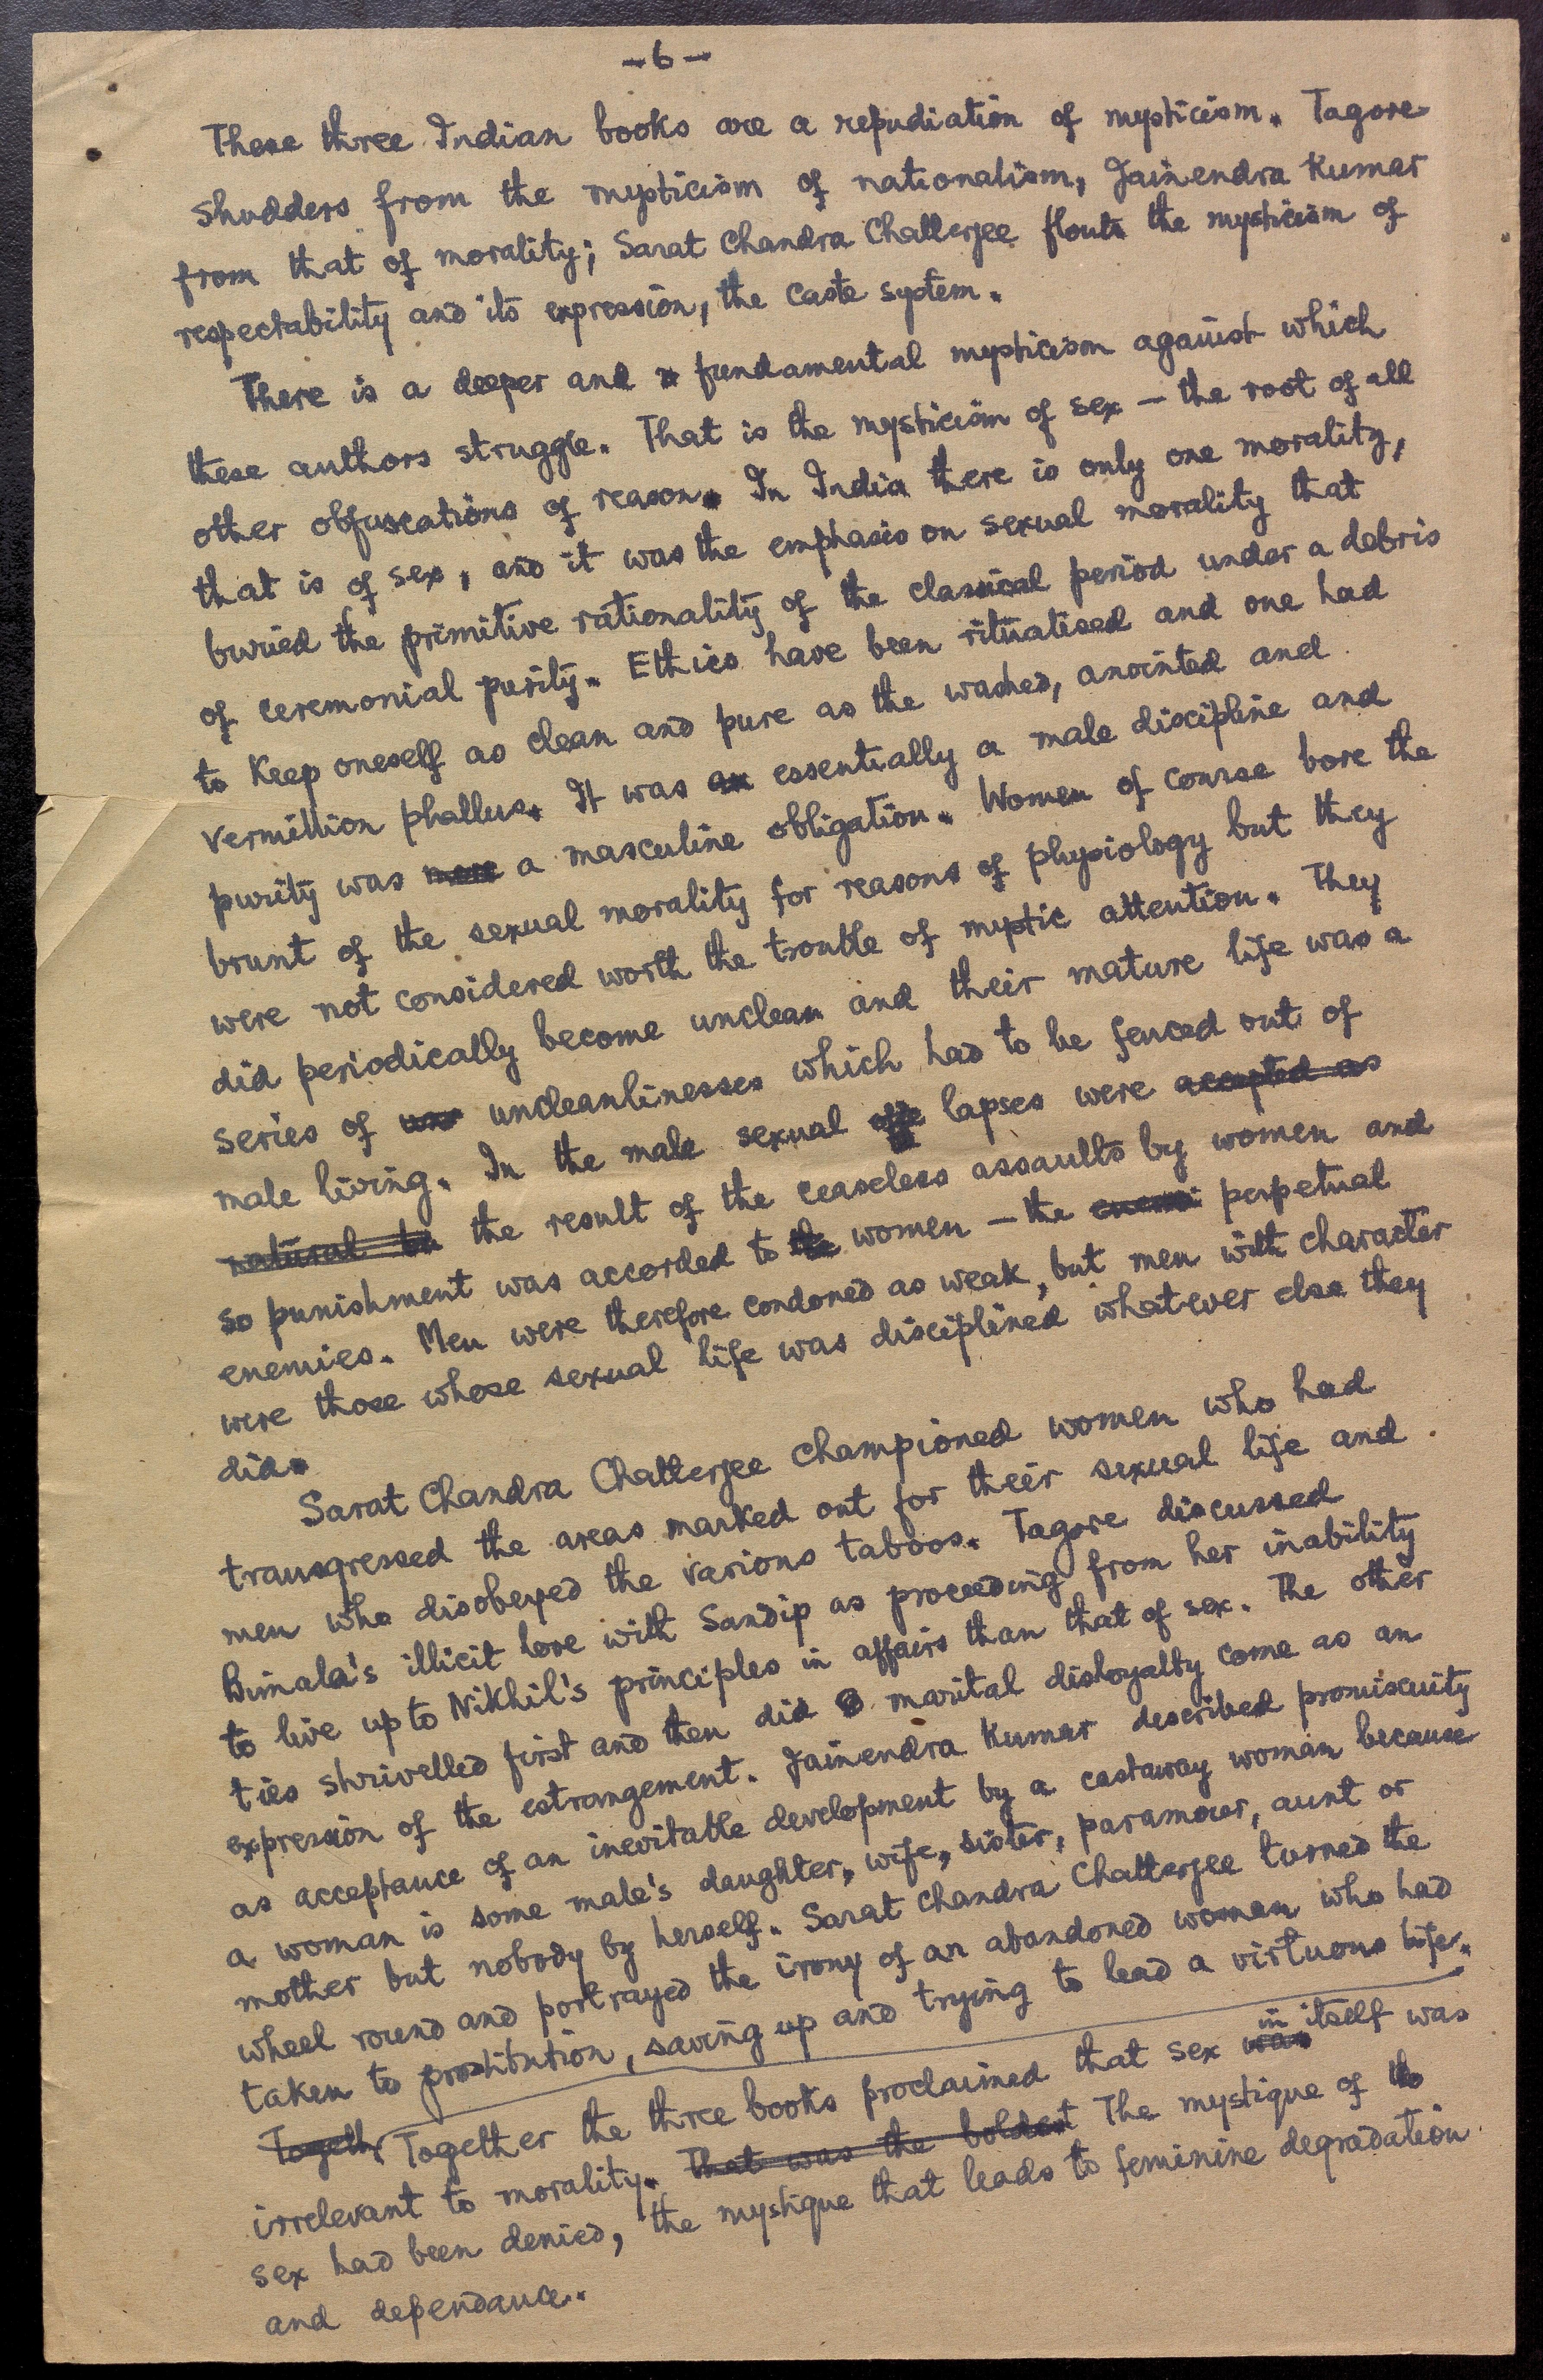 -6-
These three Indian books are a repudiation of mysticism. Tagore
shudders from the mysticism of nationalism, Jainendra Kumar
from that of morality; Sarat Chandra Chatterjee flouts the mysticism of
respectability and its expression, the caste system.
There is a deeper and fundamental mysticism against which
these authors struggle. That is the mysticism of sex - the root of all
other obfuscations of reason. In India there is only one morality,
that is of sex, and it was the emphasis on sexual morality that
buried the primitive rationality of the classical period under a debris
of ceremonial purity. Ethics have been ritualised and one had
to keep oneself as clean and pure as the washed, anointed and
vermillion phallus. It was an essentially a male discipline and
purity was more a masculine obligation. Women of course bore the
brunt of the sexual morality for reasons of physiology but they
were not considered worth the trouble of mystic attention. They
did periodically become unclean and their mature life was a
series of uncleanlinesses which had to be fenced out of
male living. In the male sexual lapses were accepted as
natural the result of the ceaseless assaults by women and
so punishment was accorded to the women - the perpetual
enemies. Men were therefore condoned as weak, but men with character
were those whose sexual life was disciplined whatever else they
did.
Sarat Chandra Chatterjee championed women who had
transgressed the areas marked out for their sexual life and
men who disobeyed the various taboos. Tagore discussed
Bimala's illicit love with Sandip as proceeding from her inability
to live up to Nikhil's principles in affairs than that of sex. The other
ties shrivelled first and then did marital disloyalty come as an
expression of the estrangement. Jainendra Kumar described promiscuity
as acceptance of an inevitable development by a castaway woman because
a woman is some male's daughter, wife, sister, paramour, aunt or
mother but nobody by herself. Sarat Chandra Chatterjee turned the
wheel round and portrayed the irony of an abandoned woman who had
taken to prostitution, saving up and trying to lead a virtuous life.
Togeth Together the three books proclaimed that sex was in itself was
irrelevant to morality. That was the boldest The mystique of
sex had been denied, the mystique that leads to feminine degradation
and dependance.